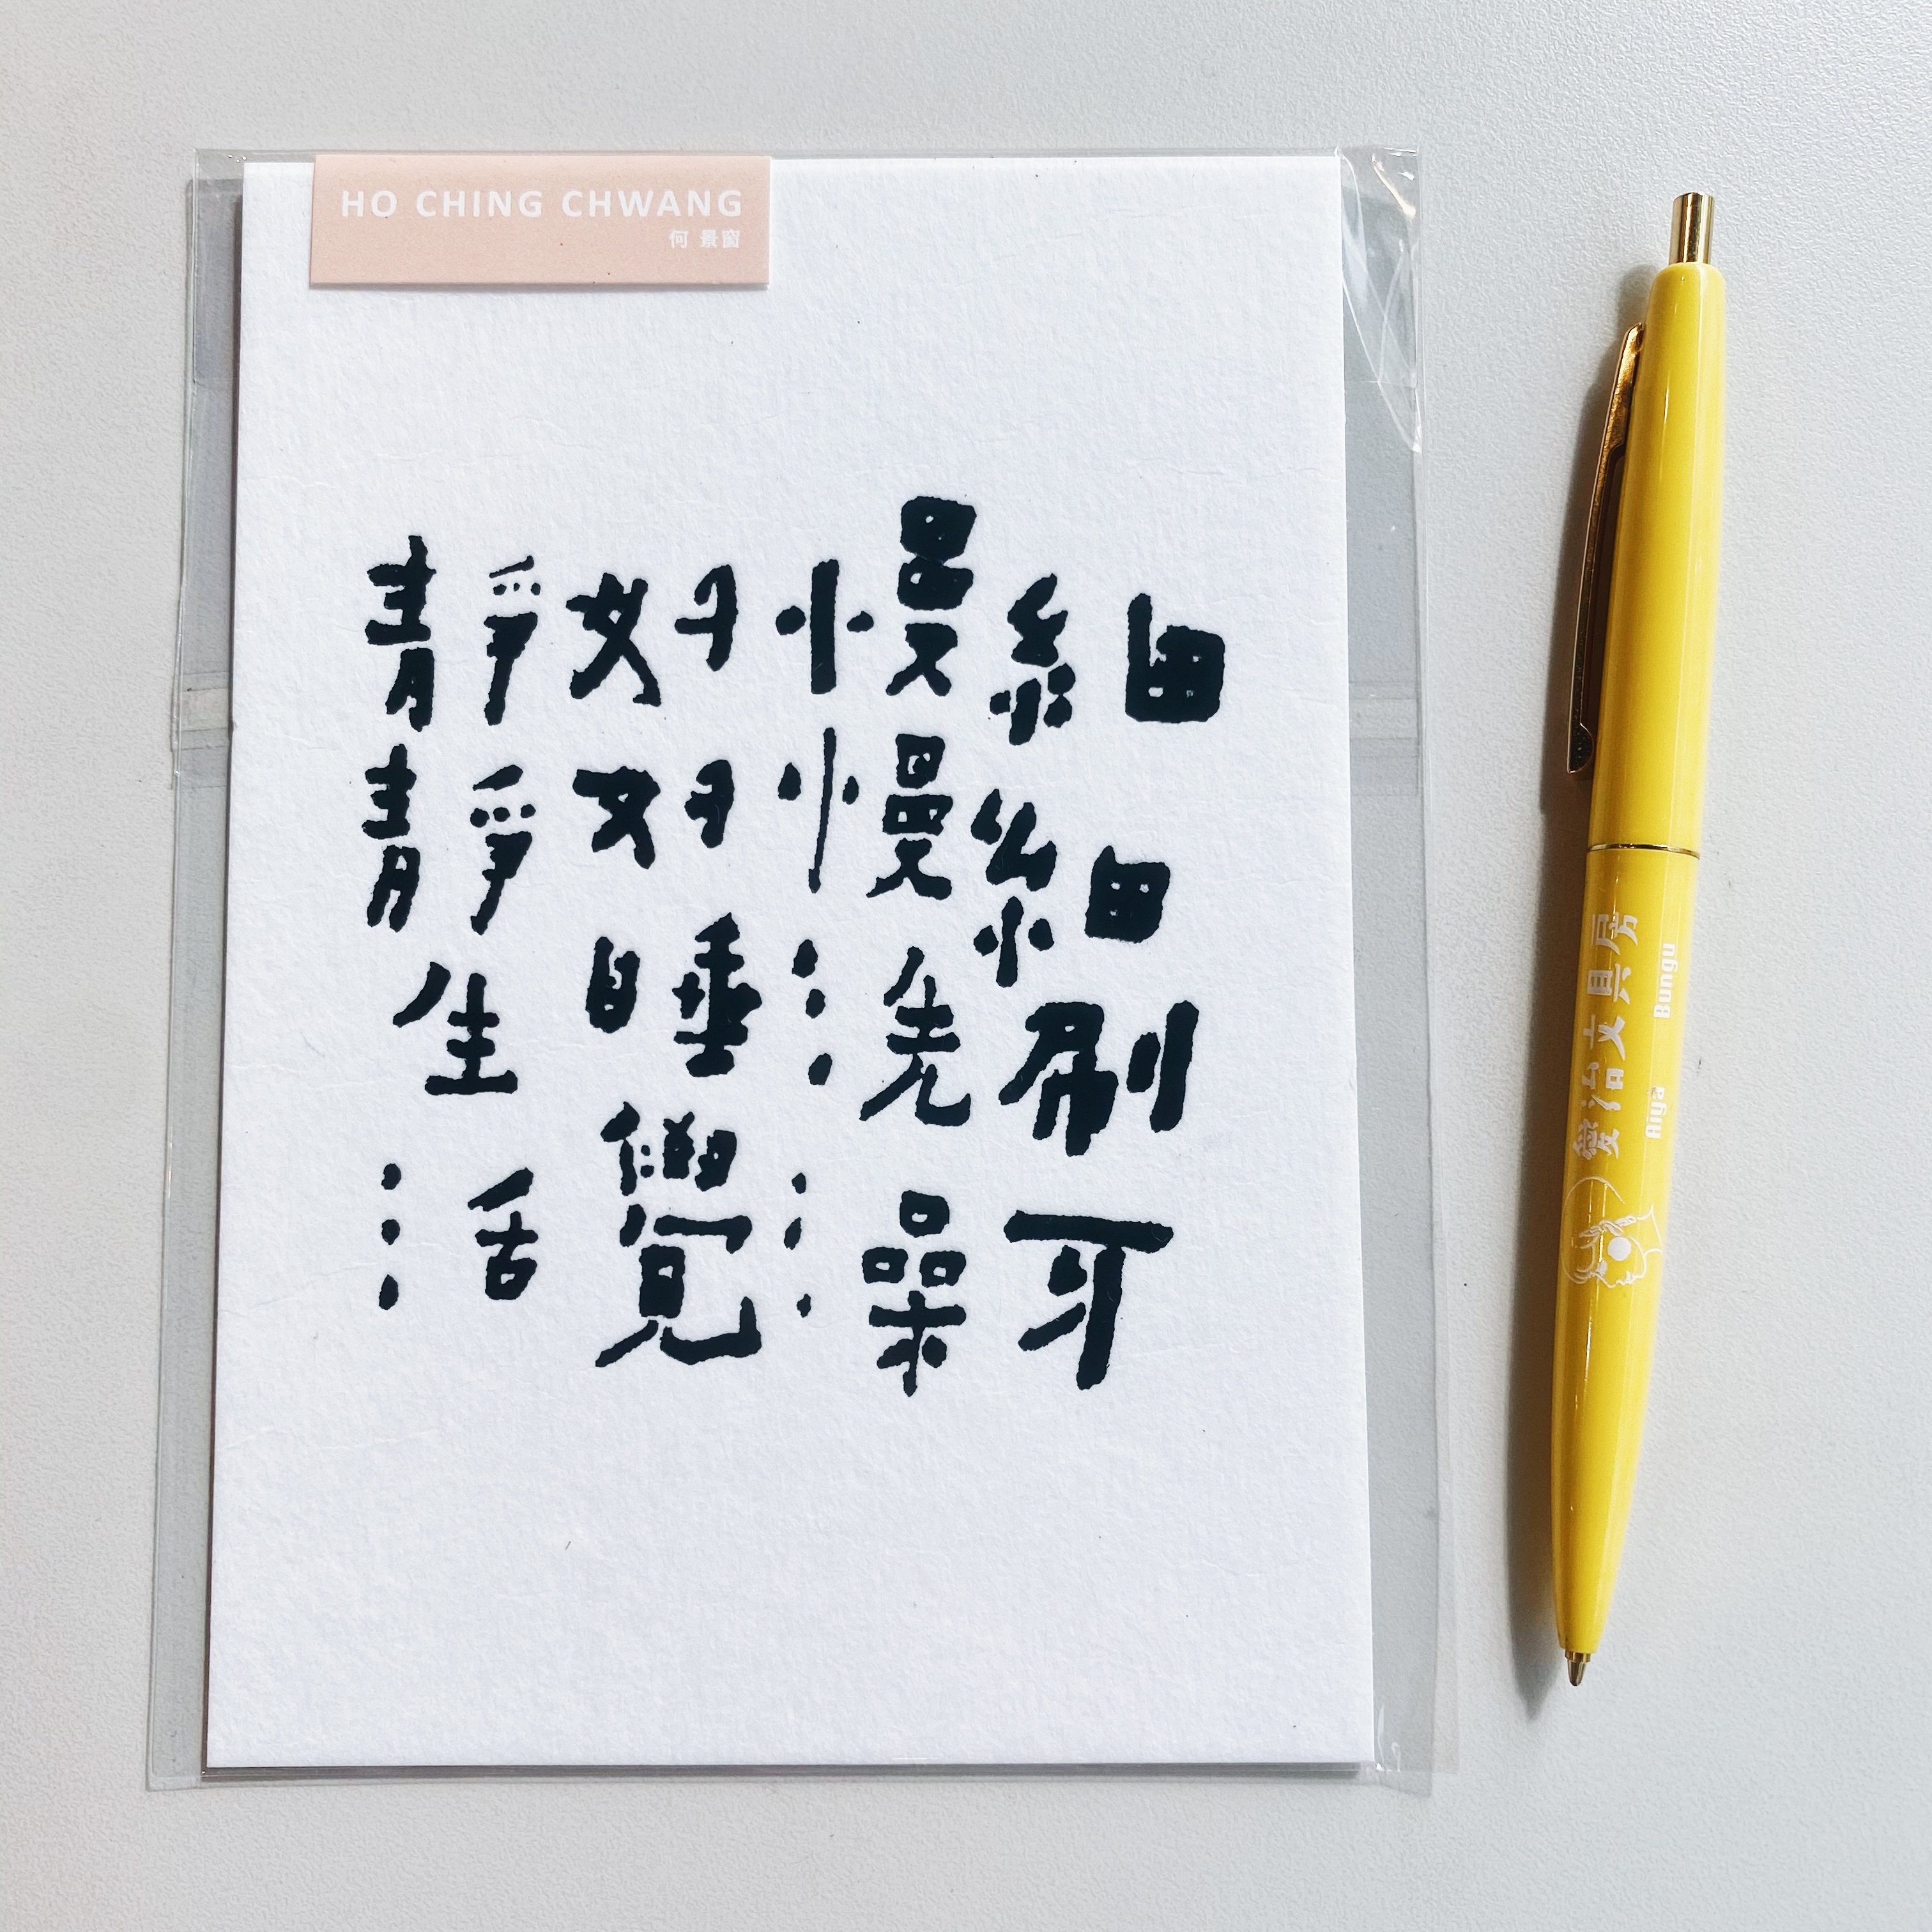 HO CHING CHWANG
何景窗
細細刷牙
慢慢洗澡
好好睡覺
靜靜生活
愛治文具房
Aiya Bungu